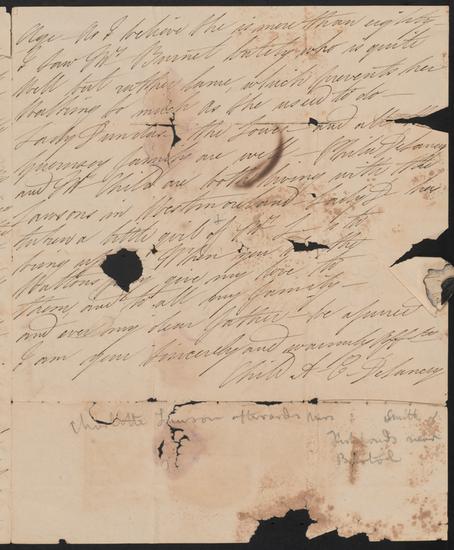 Age - As I believe she is more than eighty
I saw Mrs. Barnet lately who is quite
Well but rather lame, which prevents her
Walking so much as she used to do
Lady Dundas the Tower and all the
Guernsey family are well.
and Mr Child are both living with the
Lawsons in Westmoreland Lady D has
taken a little girl of Mr to
bring up When you the
Waltons pray give my love to
them and to all my family -
and ever my dear Father be assured
I am your Sincerely and warmly Affte
Child A C DeLancey
Charlotte Lawson afterwards Mrs Smith of
near
Bristol